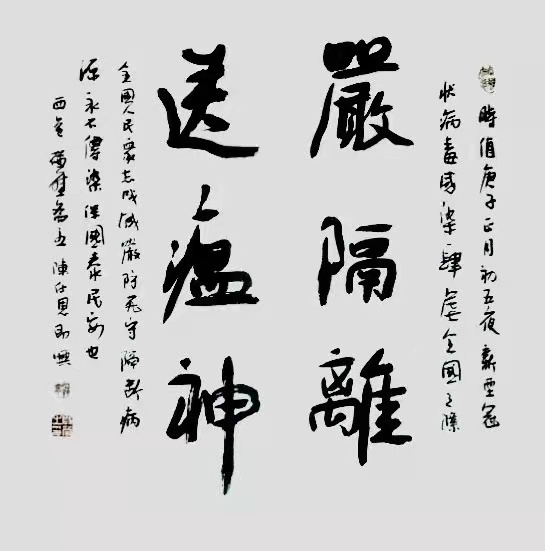 時值庚子正月初五夜新型冠
狀病毒感染肆虐全國之際
嚴隔離
送瘟神
全國人民眾志成城嚴防死守隔斷病
源永不傳染保國泰民安也
西 陳仕恩即興